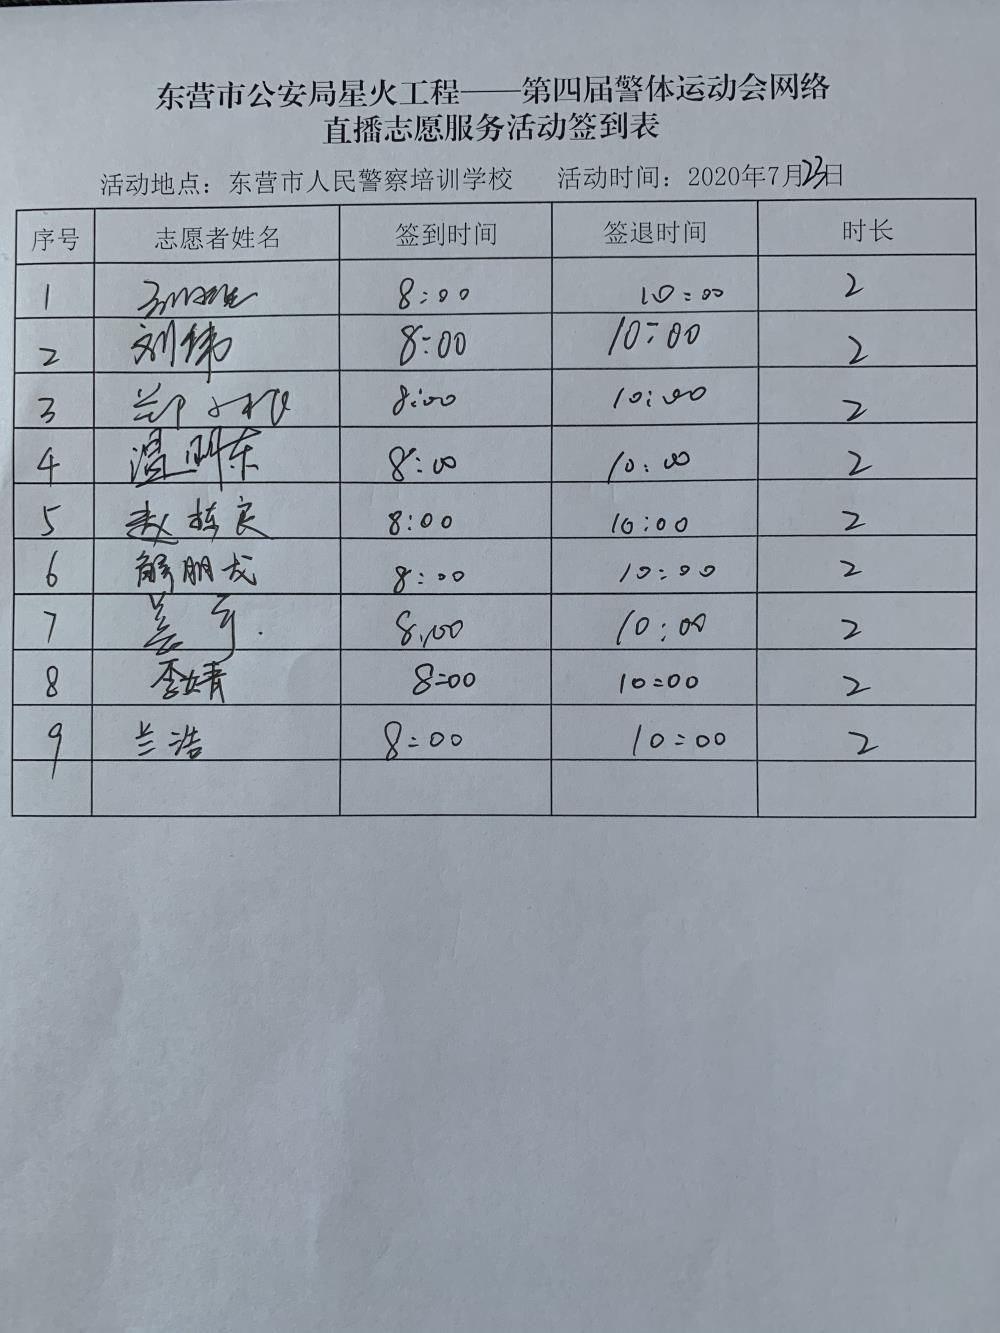 东营市公安局星火工程——第四届警体运动会网络
直播志愿服务活动签到表
活动地点：东营市人民警察培训学校 活动时间：2020年7月23日
序号 志愿者姓名 签到时间 签退时间 时长
1 8:00 10:00 2
2 刘伟 8:00 10:00 2
3 8:00 10:00 2
4 温明东 8:00 10:00 2
5 赵栋良 8:00 10:00 2
6 解朋戈 8:00 10:00 2
7 8:00 10:00 2
8 李婧 8:00 10:00 2
9 兰浩 8:00 10:00 2